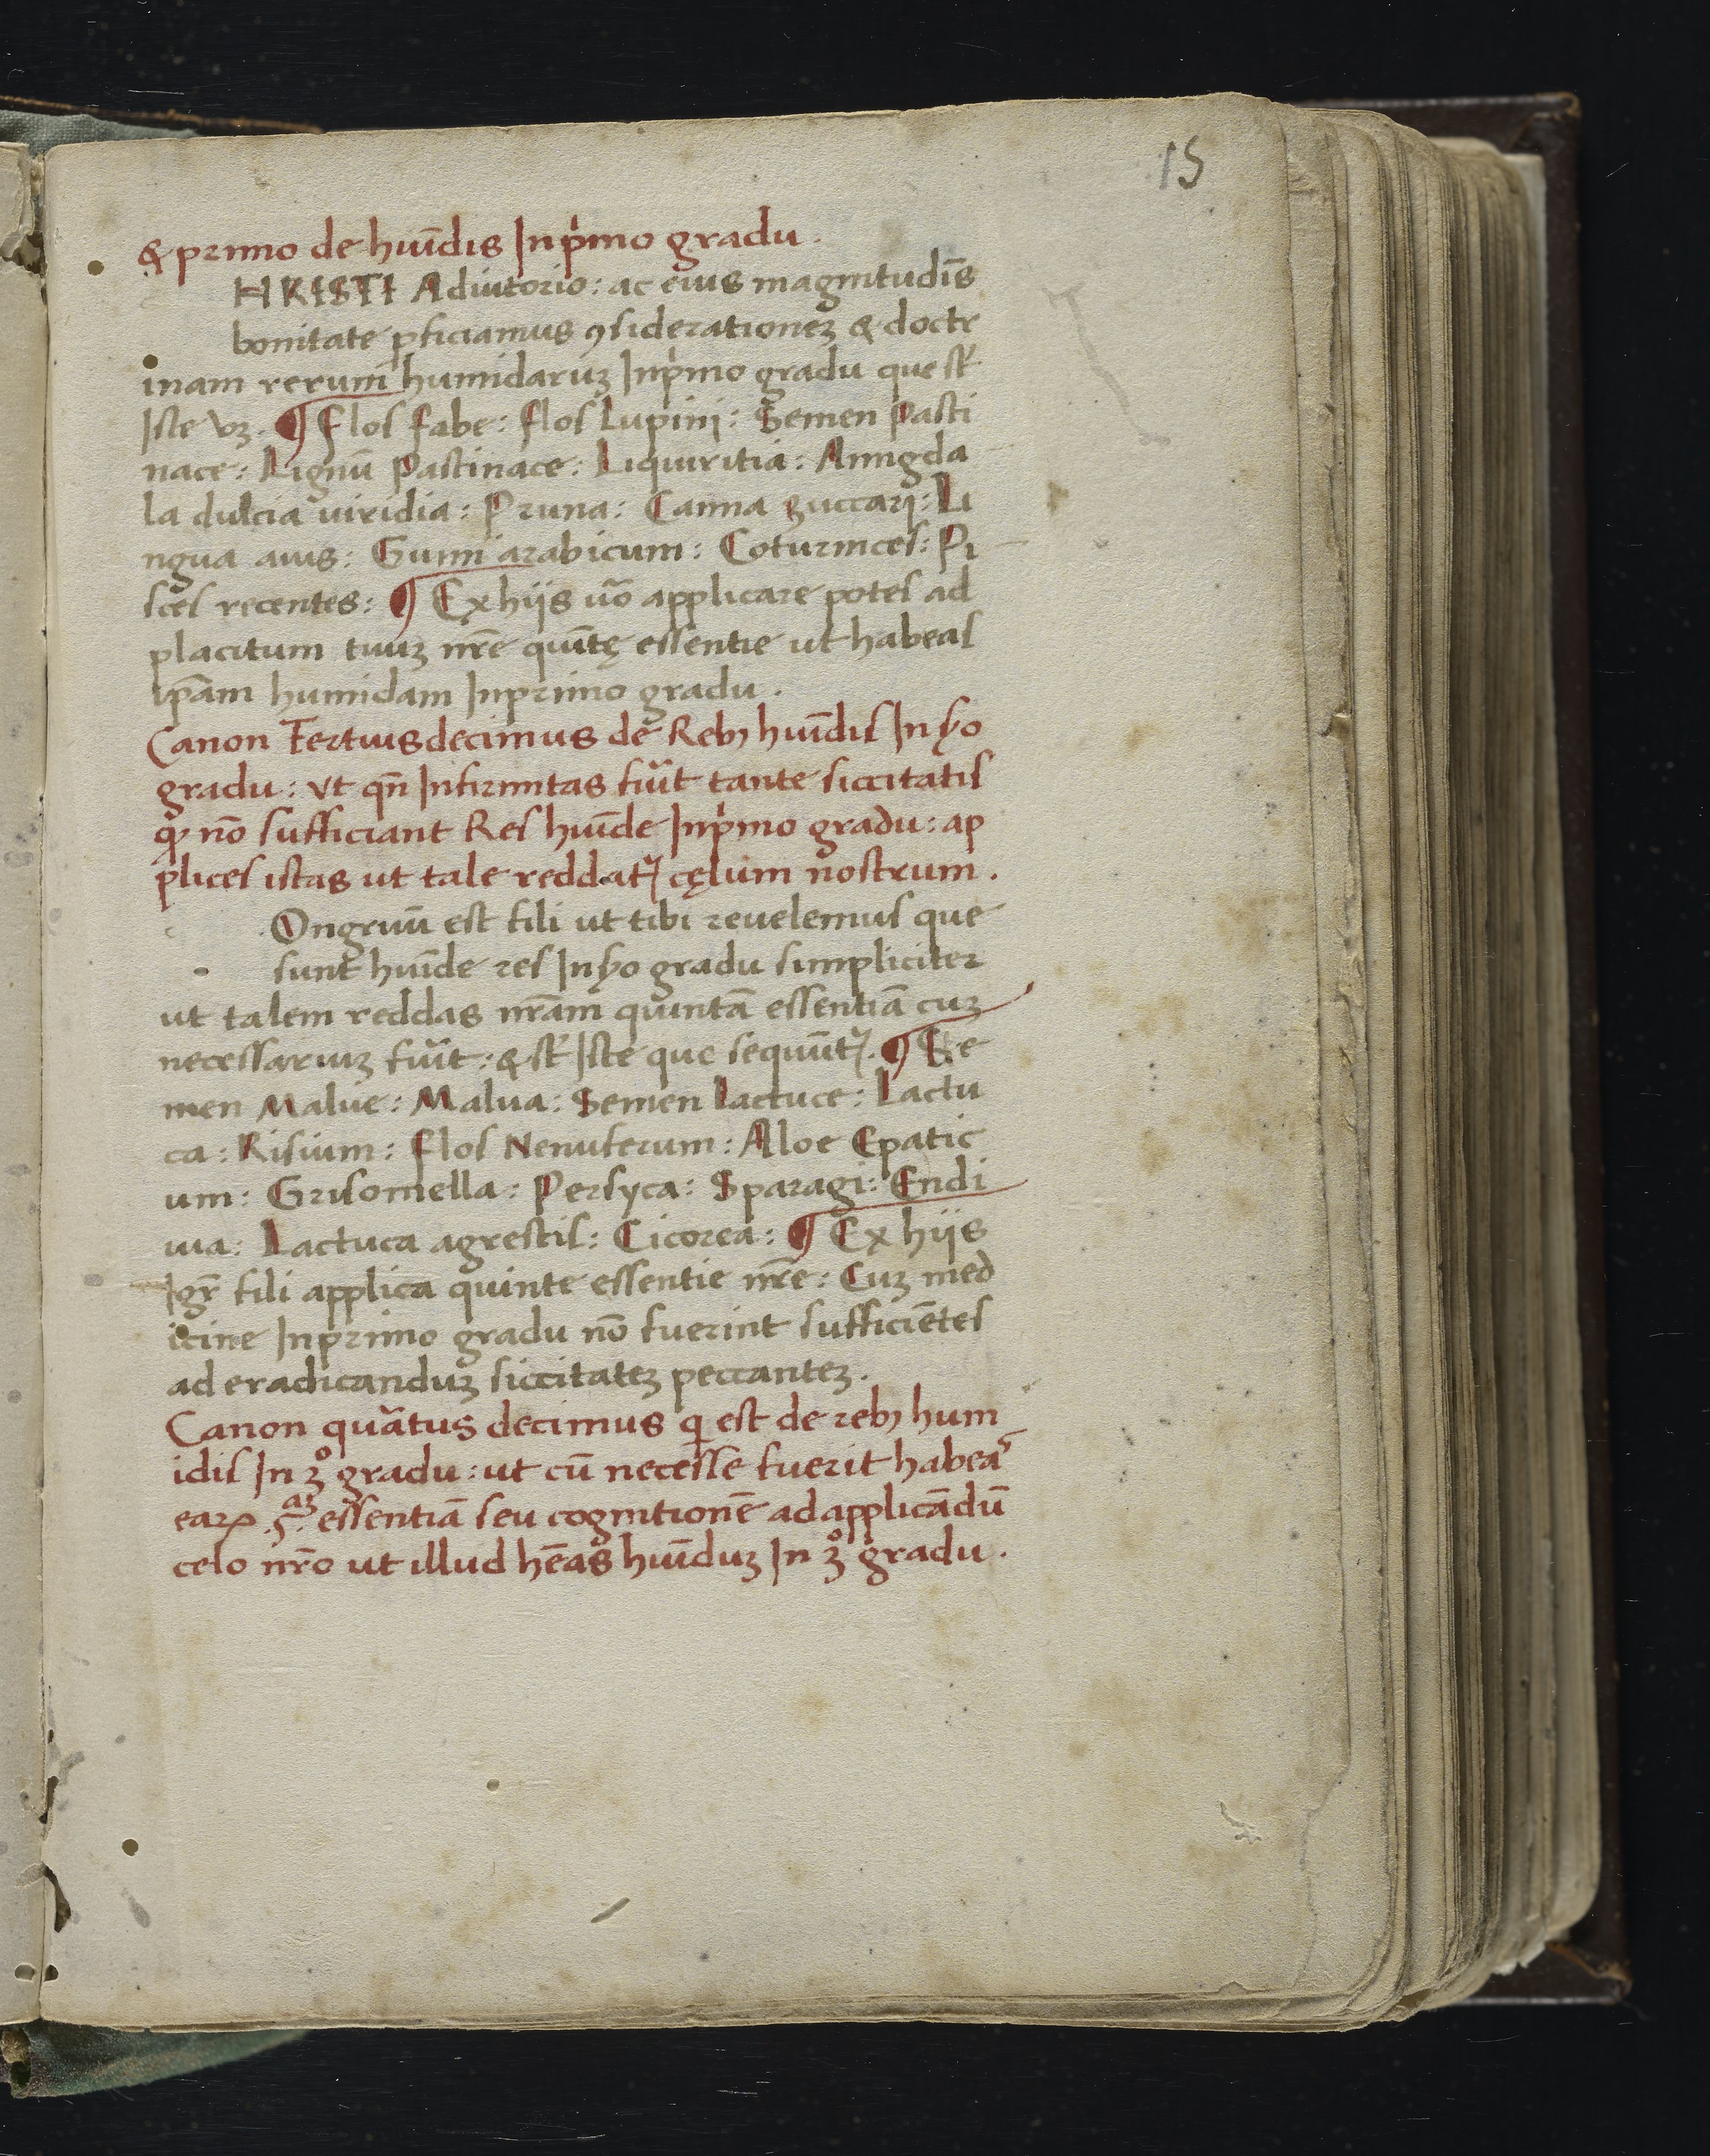 15
& primo de hūīdis Inpͥmo gradu.
HRISTI Adiutorio: ac eius magnitudīs
bonitate ꝑficiamus ꝯsiderationeꝫ & doctr
inam rerum humidaruꝫ Inpͥmo gradu que st̄
Iste vꝫ. ¶ Flos fabe: flos Lupini: Semen Pasti
nace: Lignū Pastinace: Liquiritia: Amigda
la dulcia uiridia: Pruna: Canna zuccari: Li
ngua auis: Gumi arabicum: Coturnices: Pi
sces recentes: ¶ Ex hijs uō applicare potes ad
placitum tuuꝫ nr̄e quītę essentie ut habeas
ip̄am humidam Inprimo gradu.
Canon Tertiusdecimus de Rebꝫ hūīdis In ẜo
gradu: vt qn̄ Infirmitas fūit tante siccitatis
ꝙ nō sufficiant Res hūīde Inpͥmo gradu: ap
plices istas ut tale reddatꝛ cęlum nostrum.
Ongruū est fili ut tibi reuelemus que
sunt hūīde res In ẜo gradu simpliciter
ut talem reddas nr̄am quintā essentiā cuꝫ
necessariuꝫ fūit: & st̄ Iste que sequūtꝛ. ¶ Se
men Malue: Malua: Semen lactuce: Lactu
ca: Risium: flos Nenuferum: Aloe Epatic
um: Grisomella: Persyca: Sparagi: Endi
uia: Lactuca agrestis: Cicorea: ¶ Ex hijs
Igr̄ fili applica quinte essentie nr̄e: Cuꝫ med
icine Inprimo gradu nō fuerint sufficiētes
ad eradicanduꝫ siccitateꝫ peccanteꝫ.
Canon quātus decimus q est de rebꝫ hum
idis In 3º gradu: ut cū necesse fuerit habeās
eaꝝ .5.aꝫ essentiā seu cognitionē ad applicādū
celo nr̄o ut illud hēas hūīduꝫ In 3º gradu.